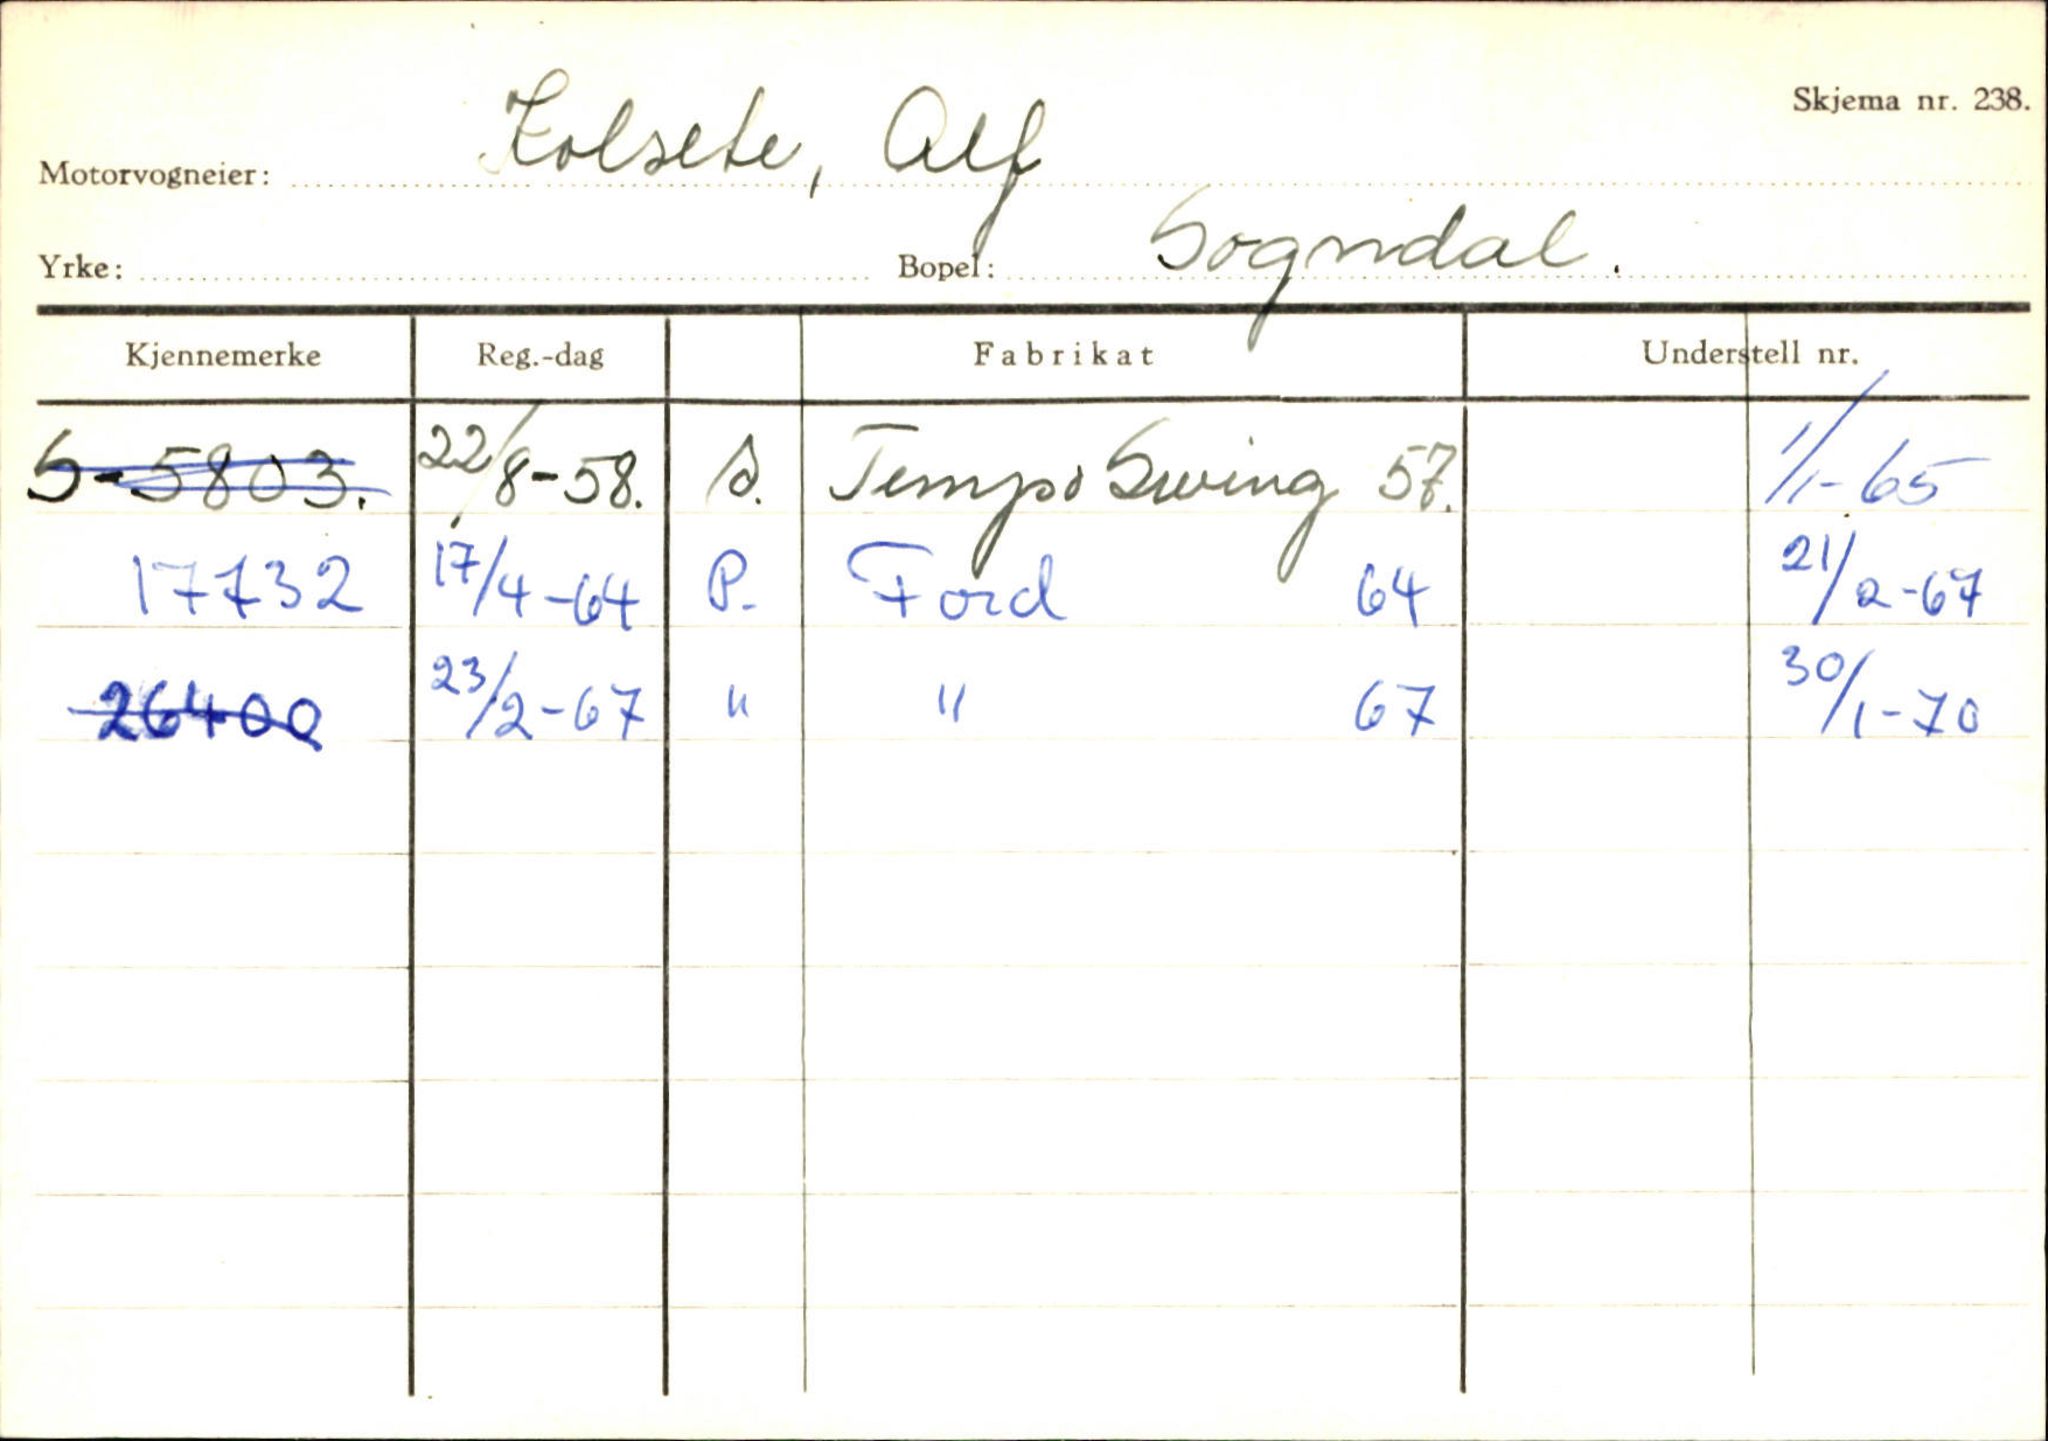 Skjema nr. 238.
Motorvogneier: Kolsete, Alf
Yrke: Bopel: Sogndal.
Kjennemerke Reg.-dag Fabrikat Understell nr.
S-5803. 22/8-58. s. Tempo Swing 57. 1/1-65
17732 17/4-64 P. Ford 64 21/2-67
26400 23/2-67 " " 67 30/1-70